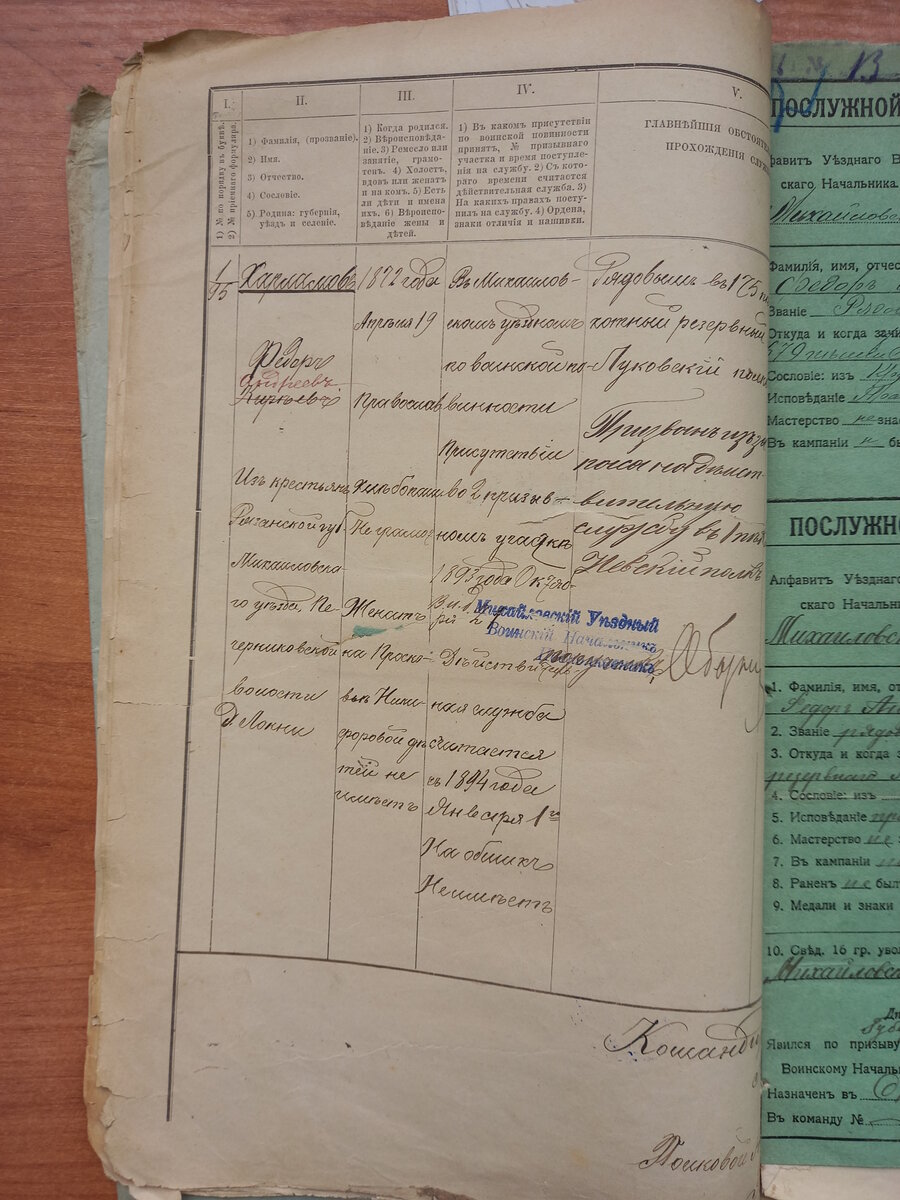 I.
II.
III.
IV.
V.
1) № по порядку въ буквѣ.
2) № пріемнаго формуляра.
1) Фамилія, (прозваніе).
2) Имя.
3) Отчество.
4) Сословіе.
5) Родина: губернія,
уѣздъ и селеніе.
1) Когда родился.
2) Вѣроисповѣда-
ніе. 3) Ремесло или
занятіе, грамо-
тенъ. 4) Холостъ,
вдовъ или женатъ
и на комъ. 5) Есть
ли дѣти и имена
ихъ. 6) Вѣроиспо-
вѣданіе жены и
дѣтей.
1) Въ какомъ присутствіи
по воинской повинности
принятъ, № призывнаго
участка и время поступле-
нія на службу. 2) Съ кото-
раго времени считается
дѣйствительная служба. 3)
На какихъ правахъ посту-
пилъ на службу. 4) Ордена,
знаки отличія и нашивки.
ГЛАВНѢЙШІЯ ОБСТОЯТЕ
ПРОХОЖДЕНІЯ СЛУЖ
1/95
Харламовъ
Федоръ
Андреевъ
Изъ крестьянъ
Рязанской губ
Михайловска-
го уѣзда Пе-
черниковской
волости
Д. Локни
1872 года
Апрѣля 19
Православ
Хлѣбопаш
Не грамот
Женатъ
на Проско-
вьѣ Ники-
форовой дѣ
тей не
имѣетъ
Въ Михайлов-
скомъ уѣздномъ
по воинской по-
винности
Присутствіи
во 2 призыв-
номъ участкѣ
1893 года Октяб-
рѣ 2
Дѣйствитель
ная служба
считается
съ 1894 года
Января 1го
На общихъ
Неимѣетъ
Рядовымъ въ 175 пѣ
хотный резервный
Луковскій полкъ
Призванъ изъ за
паса на дѣйст-
вительную
службу въ 1 пѣх
Невскій полкъ
Михайловскій Уѣздный
Воинскій Начальникъ
Команди
Полковой
ПОСЛУЖНОЙ
лфавитъ Уѣзднаго В
скаго Начальника.
Михайлов
Фамилія, имя, отчес
Федоръ
Званіе Рядо
Откуда и когда зачи
Сословіе: изъ
Исповѣданіе Пра
Мастерство не зна
Въ кампаніи не бы
ПОСЛУЖНО
Алфавитъ Уѣзднаго
скаго Начальни
Михайловс
1. Фамилія, имя, от
Федоръ Ан
2. Званіе рядов
3. Откуда и когда з
резервнаго
4. Сословіе: изъ
5. Исповѣданіе пра
6. Мастерство не з
7. Въ кампаніи не
8. Раненъ не был
9. Медали и знаки
10. Свѣд. 16 гр. увол
Михайловс
Явился по призыву
Воинскому Началь
Назначенъ въ
Въ команду №